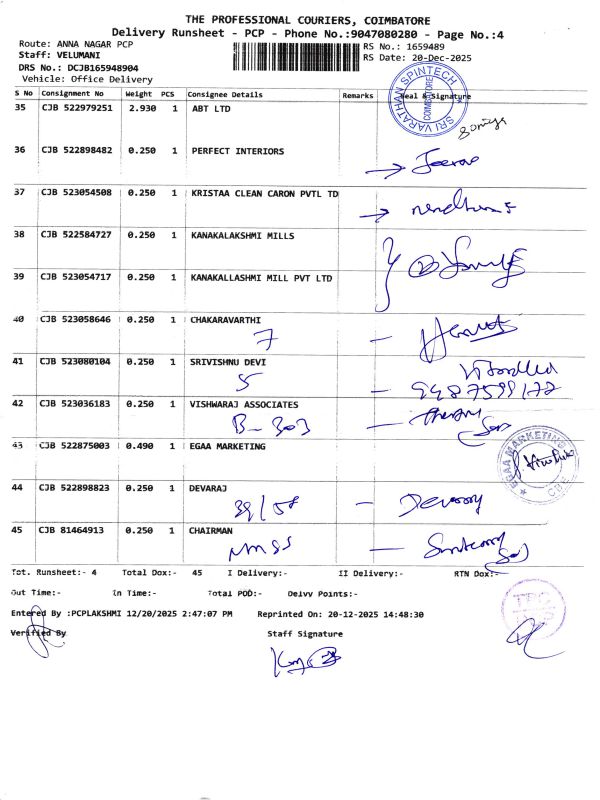 THE PROFESSIONAL COURIERS, COIMBATORE
Delivery Runsheet - PCP - Phone No.:9047080280 - Page No.:4
Route: ANNA NAGAR PCP
RS No.: 1659489
Staff: VELUMANI
RS Date: 20-Dec-2025
DRS No.: DCJB165948904
Vehicle: Office Delivery
S No Consignment No Weight PCS Consignee Details Remarks Seal & Signature
35 CJB 522979251 2.930 1 ABT LTD
SRI VARATHAN SPINTECH COIMBATORE
36 CJB 522898482 0.250 1 PERFECT INTERIORS
37 CJB 523054508 0.250 1 KRISTAA CLEAN CARON PVTL TD
38 CJB 522584727 0.250 1 KANAKALAKSHMI MILLS
39 CJB 523054717 0.250 1 KANAKALLASHMI MILL PVT LTD
40 CJB 523058646 0.250 1 CHAKARAVARTHI
7
41 CJB 523080104 0.250 1 SRIVISHNU DEVI
5
42 CJB 523036183 0.250 1 VISHWARAJ ASSOCIATES
B-303
43 CJB 522875003 0.490 1 EGAA MARKETING
EGAA MARKETING CBE
44 CJB 522898823 0.250 1 DEVARAJ
39/58 - Devaraj
45 CJB 81464913 0.250 1 CHAIRMAN
Tot. Runsheet:- 4 Total Dox:- 45 I Delivery:- II Delivery:- RTN Dox:-
Out Time:- In Time:- Total POD:- Delvv Points:-
Entered By :PCPLAKSHMI 12/20/2025 2:47:07 PM Reprinted On: 20-12-2025 14:48:30
Verified By Staff Signature